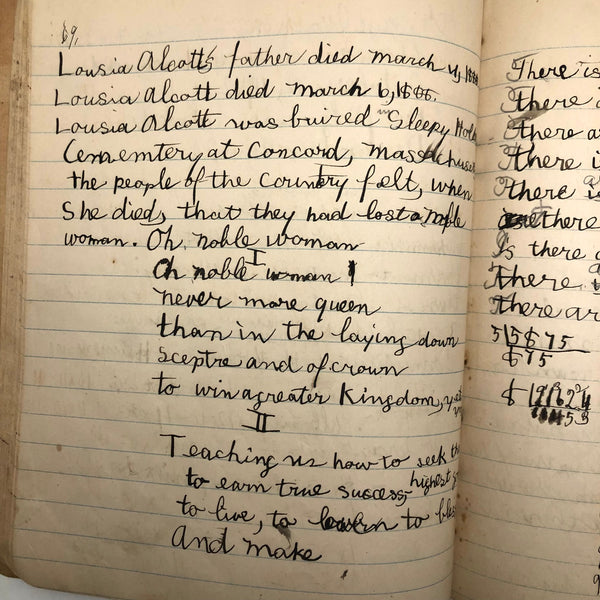 69,
Lousia Alcotts father died march 4, 1888
Lousia Alcott died march 6, 1888.
Lousia Alcott was buired in Sleepy Holl
Cememtery at Concord, Massachuse
the people of the country felt, when
She died, that they had lost a noble
woman. Oh, noble woman
I
Oh noble woman !
never more queen
than in the laying down
sceptre and of crown
to win a greater Kingdom, yet
II
Teaching us how to seek the
highest
to earn true success,
to live, to to bless
And make
There is
There
there a
there i
there is
there
Is there a
There
There are
5 | 5 $ 75
$ 75